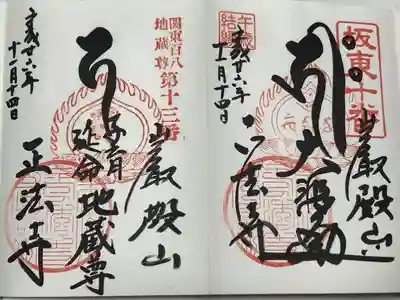 坂東十番
巌殿山
正法寺
平成廿六年
十一月十四日
関東百八
地蔵尊
第十三番
巌殿山
子育
延命
地蔵尊
正法寺
平成廿六年
十一月十四日